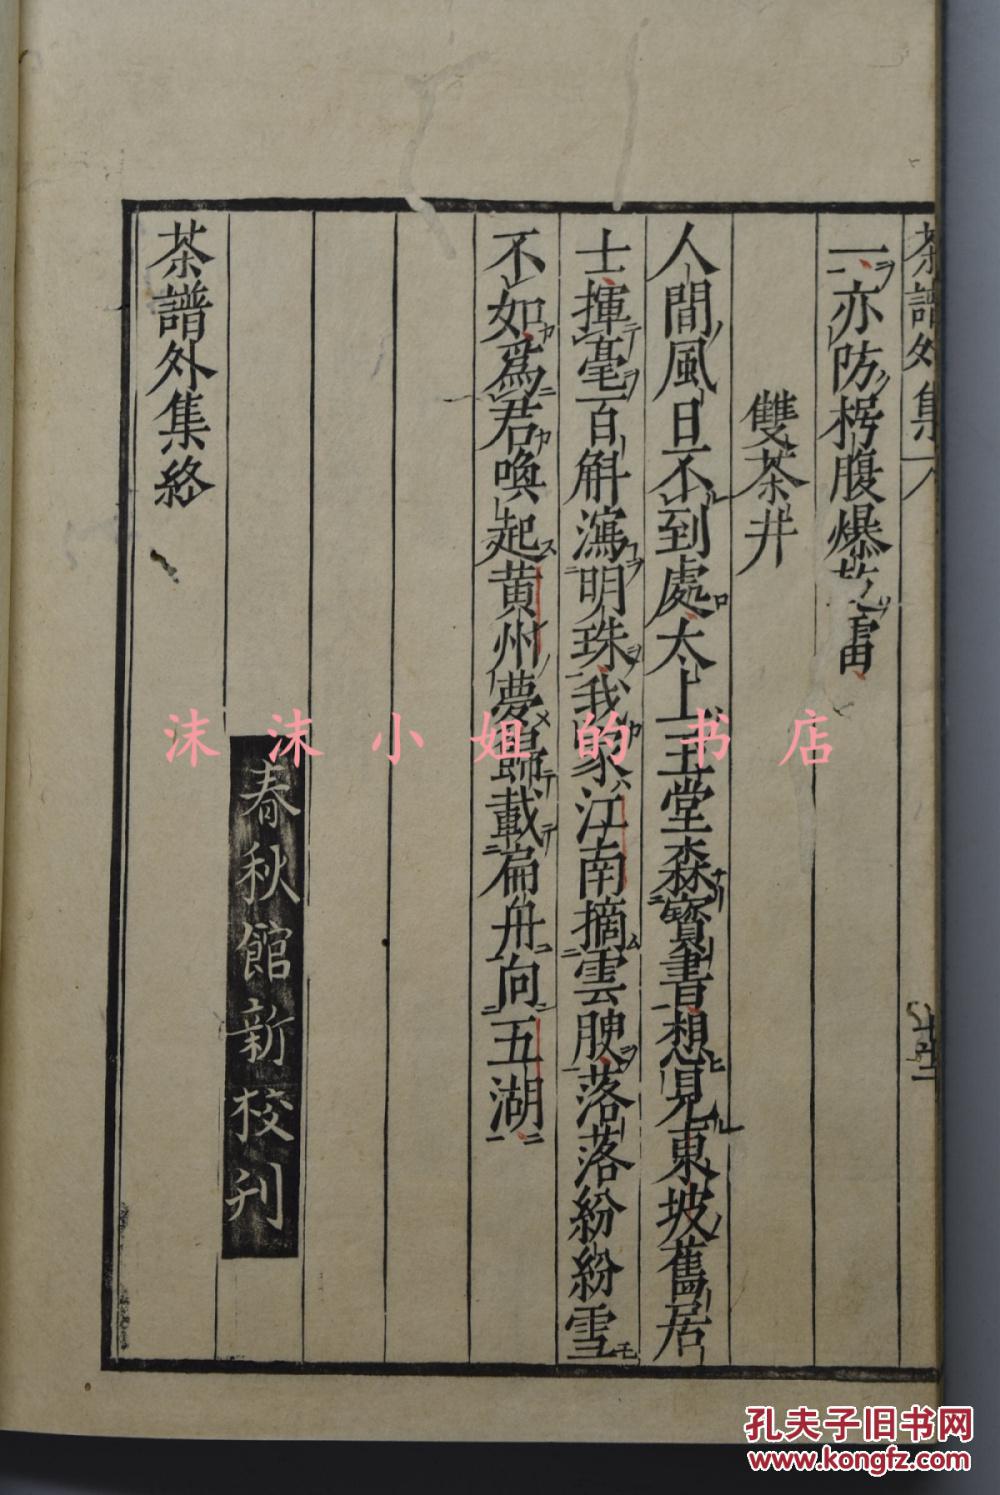 茶譜外集
一亦防枵腹爆乾雷
雙茶井
人間風日不到處太上玉堂森寶書想見東坡舊居
士揮毫百斛瀉明珠我家江南摘雲腴落落紛紛雪
不如爲君喚起黄州夢歸載扁舟向五湖
春秋館新校刊
茶譜外集終
沫沫小姐的书店
孔夫子旧书网
www.kongfz.com